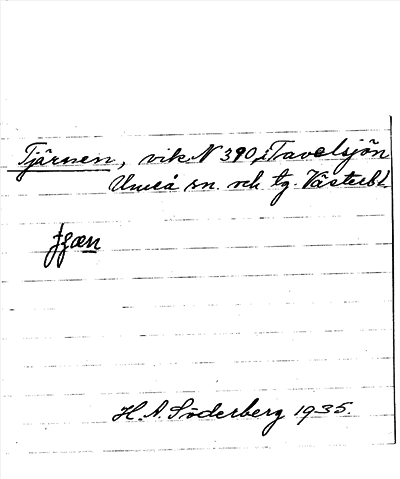 Tjärnen, vik N 390 i Tavelsjön
Umeå sn. och tg. Västerb. l
H. A. Söderberg 1935.